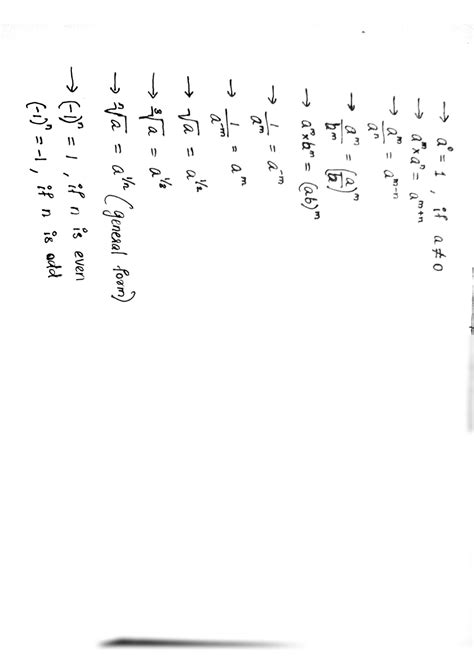 → a⁰ = 1, if a ≠ 0
→ aᵐ × aⁿ = aᵐ⁺ⁿ
→ aᵐ/aⁿ = aᵐ⁻ⁿ
→ aᵐ/bᵐ = (a/b)ᵐ
→ aᵐ × bᵐ = (ab)ᵐ
→ 1/aᵐ = a⁻ᵐ
→ 1/a⁻ᵐ = aᵐ
→ √a = a^1/2
→ ³√a = a^1/3
→ ⁿ√a = a^1/2 (general form)
→ (-1)ⁿ = 1, if n is even
(-1)ⁿ = -1, if n is odd